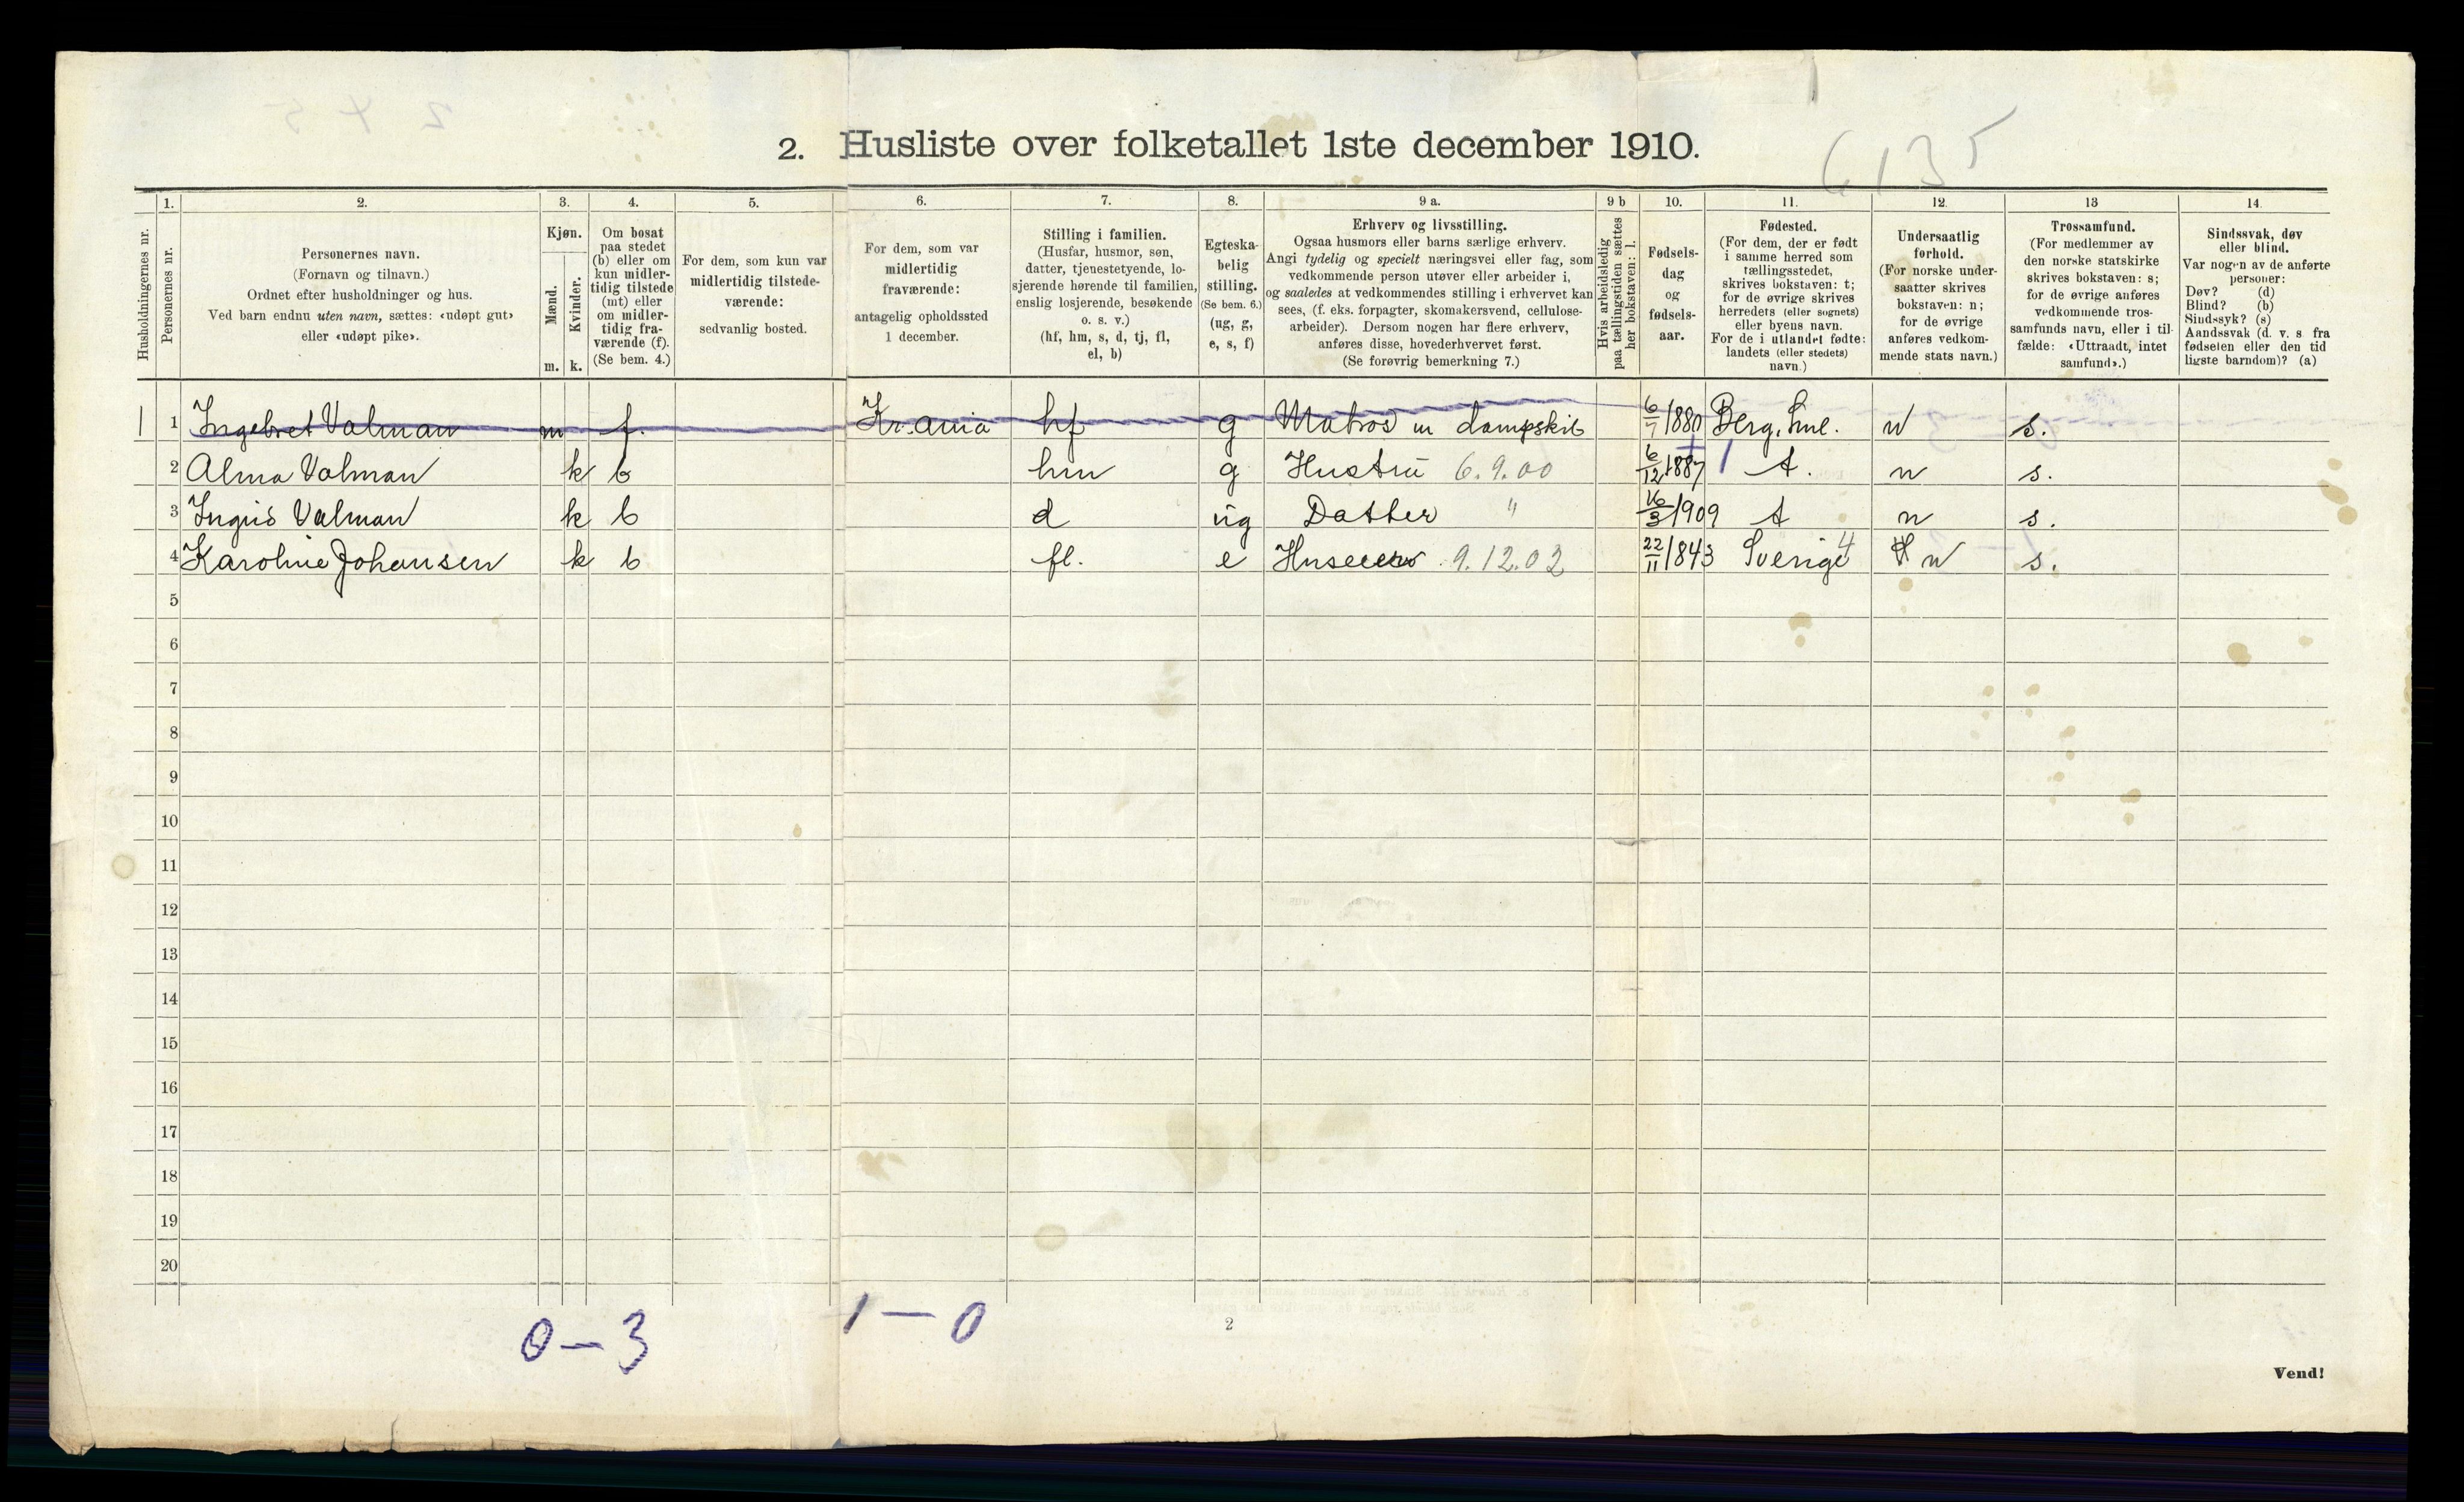 6135
2. Husliste over folketallet 1ste december 1910.
Husholdningernes nr.
1. Personernes nr.
2. Personernes navn.
(Fornavn og tilnavn.)
Ordnet efter husholdninger og hus.
Ved barn endnu uten navn, sættes: «udøpt gut»
eller «udøpt pike».
3. Kjøn.
Mænd. Kvinder.
m. k.
4. Om bosat
paa stedet
(b) eller om
kun midler-
tidig tilstede
(mt) eller
om midler-
tidig fra-
værende (f).
(Se bem. 4.)
5. For dem, som kun var
midlertidig tilstede-
værende:
sedvanlig bosted.
6. For dem, som var
midlertidig
fraværende:
antagelig opholdssted
1 december.
7. Stilling i familien.
(Husfar, husmor, søn,
datter, tjenestetyende, lo-
sjerende hørende til familien,
enslig losjerende, besøkende
o. s. v.)
(hf, hm, s, d, tj, fl,
el, b)
8. Egteska-
belig
stilling.
(Se bem. 6.)
(ug, g,
e, s, f)
9 a. Erhverv og livsstilling.
Ogsaa husmors eller barns særlige erhverv.
Angi tydelig og specielt næringsvei eller fag, som
vedkommende person utøver eller arbeider i,
og saaledes at vedkommendes stilling i erhvervet kan
sees, (f. eks. forpagter, skomakersvend, cellulose-
arbeider). Dersom nogen har flere erhverv,
anføres disse, hovederhvervet først.
(Se forøvrig bemerkning 7.)
9 b Hvis arbeidsledig
paa tællingstiden sættes
her bokstaven: l.
10. Fødsels-
dag
og
fødsels-
aar.
11. Fødested.
(For dem, der er født
i samme herred som
tællingsstedet,
skrives bokstaven: t;
for de øvrige skrives
herredets (eller sognets)
eller byens navn.
For de i utlandet fødte:
landets (eller stedets)
navn.)
12. Undersaatlig
forhold.
(For norske under-
saatter skrives
bokstaven: n;
for de øvrige
anføres vedkom-
mende stats navn.)
13 Trossamfund.
(For medlemmer av
den norske statskirke
skrives bokstaven: s;
for de øvrige anføres
vedkommende tros-
samfunds navn, eller i til-
fælde: «Uttraadt, intet
samfund».)
14. Sindssvak, døv
eller blind.
Var nogen av de anførte
personer:
Døv? (d)
Blind? (b)
Sindssyk? (s)
Aandssvak (d. v. s fra
fødselen eller den tid
ligste barndom)? (a)
1 1 Ingebret Valman m f. Kr.ania hf g Matros m dampskib 6/7 1880 Berg, Sml. n s.
2 Alma Valman k b hm g Hustru 6.9.00 6/12 1887 t. n s.
3 Ingrid Valman k b d ug Datter " 16/3 1909 t n s.
4 Karoline Johansen k b fl. e Huseier 9.12.02 22/11 1843 Sverige 4 n s.
5
6
7
8
9
10
11
12
13
14
15
16
17
18
19
20
0 – 3 1 – 0
2
Vend!